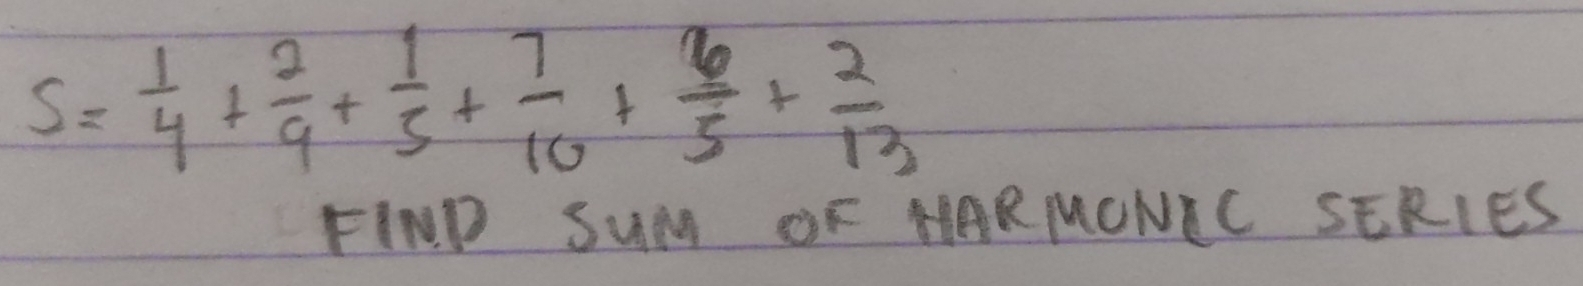 S = 1/4 + 2/9 + 1/5 + 7/10 + 6/5 + 2/13
FIND SUM OF HARMONIC SERIES